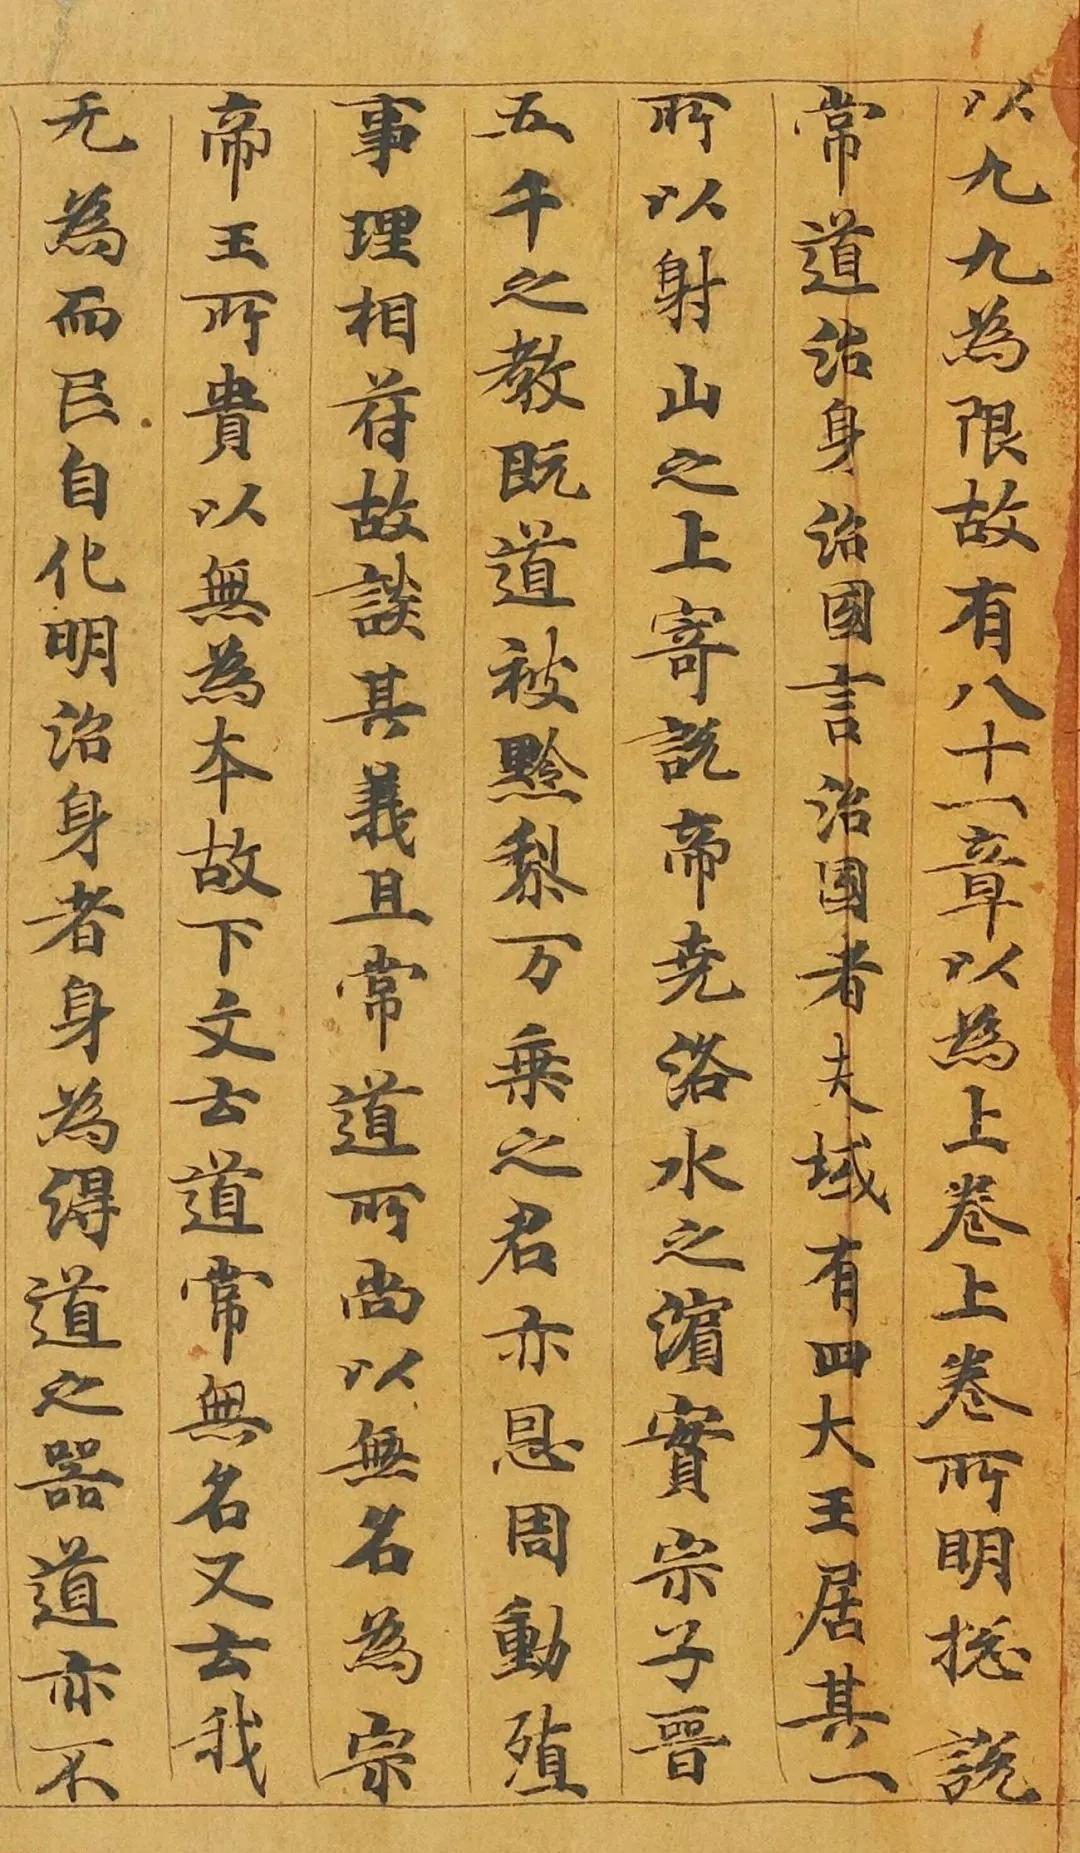 以九九為限故有八十一章以為上卷上卷所明揔說
常道治身治國言治國者夫域有四大王居其一
所以射山之上寄說帝尭洛水之濵實宗子晉
五千之教既道被黔黎万乗之君亦恩周動殖
事理相符故談其義且常道所尚以無名為宗
帝王所貴以無為本故下文云道常無名又云我
无為而民自化明治身者身為得道之器道亦不